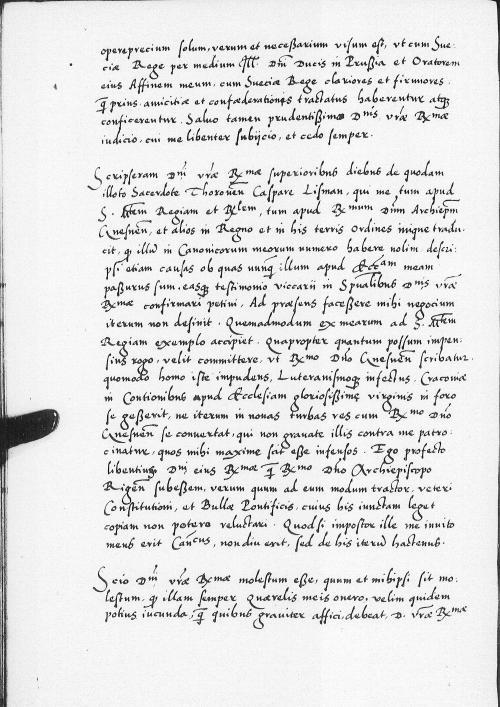 operepreciúm solum, verum et necessarium visum est, vt cum Sue-
ciæ Rege per medium Ill. Dnī Ducis in Prussia et Oratorem
eius Affinem meum, cum Sueciæ Rege clariores et firmiores
q̄ prius, amicitiæ et confæderationis tractatus haberentur atq3
conficerentur. Saluo tamen prudentissimo D. nis vr̄æ R. mæ
iudicio, cui me libenter subijcio, et cedo semper.
Scripseram D. ni vr̄æ R. mæ superioribus diebus de quodam
illoto Sacerdote Thoronen̄ Caspare Lisman, qui me tum apud
S. M. tem Regiam et R. lem, tum apud R. mum Dnm̄ Archiep̄m
Gnesnen̄, et alios in Regno et in his terris Ordines inique tradu-
cit, q illū in Canonicorum meorum numero habere nolim. descri-
psi etiam causas ob quas nunq̄ illum apud Ecc. am meam
passurus sum, easq3 testimonio viccarij in Sp̄ualibus D. nis vr̄æ
R. mæ confirmari petivi, Ad præsens facessere mihi negocium
iterum non desinit. Quemadmodum ex mearum ad S. M. tem
Regiam exemplo accipiet. Quapropter quantum possum impen-
sius rogo, velit committere, vt R. mo Dno Gnesnen̄ scribatur.
quomodo homo iste impudens, Luteranismoq3 infectus, Cracoviæ
in Contionibus apud Ecclesiam gloriosissimæ virginis in foro
se gesserit, ne iterum in nouas turbas res cum R. mo Dno
Gnesnen̄ se conuertat, qui non grauate illis contra me patro-
cinatur, quos mihi maxime scit esse infensos. Ego profecto
libentius D. ni eius R. mæ q̄ R. mo Dno Archiepiscopo
Rigen̄ subessem, verum quum ad eum modum tractor, veteri
Constitutioni, et Bullæ Pontificis, cuius his iunctam leget
copiam non potero reluctari. Quod si impostor ille me inuito
meus erit Can̄cus, non diu erit, sed de his iterū hactenus.
Scio D. ni vr̄æ R. mæ molestum esse, quum et mihipsi sit mo-
lestum, q illam semper Quærelis meis onero, velim quidem
potius iucunda, q̄ quibus grauiter affici debeat, D. vr̄æ R. mæ